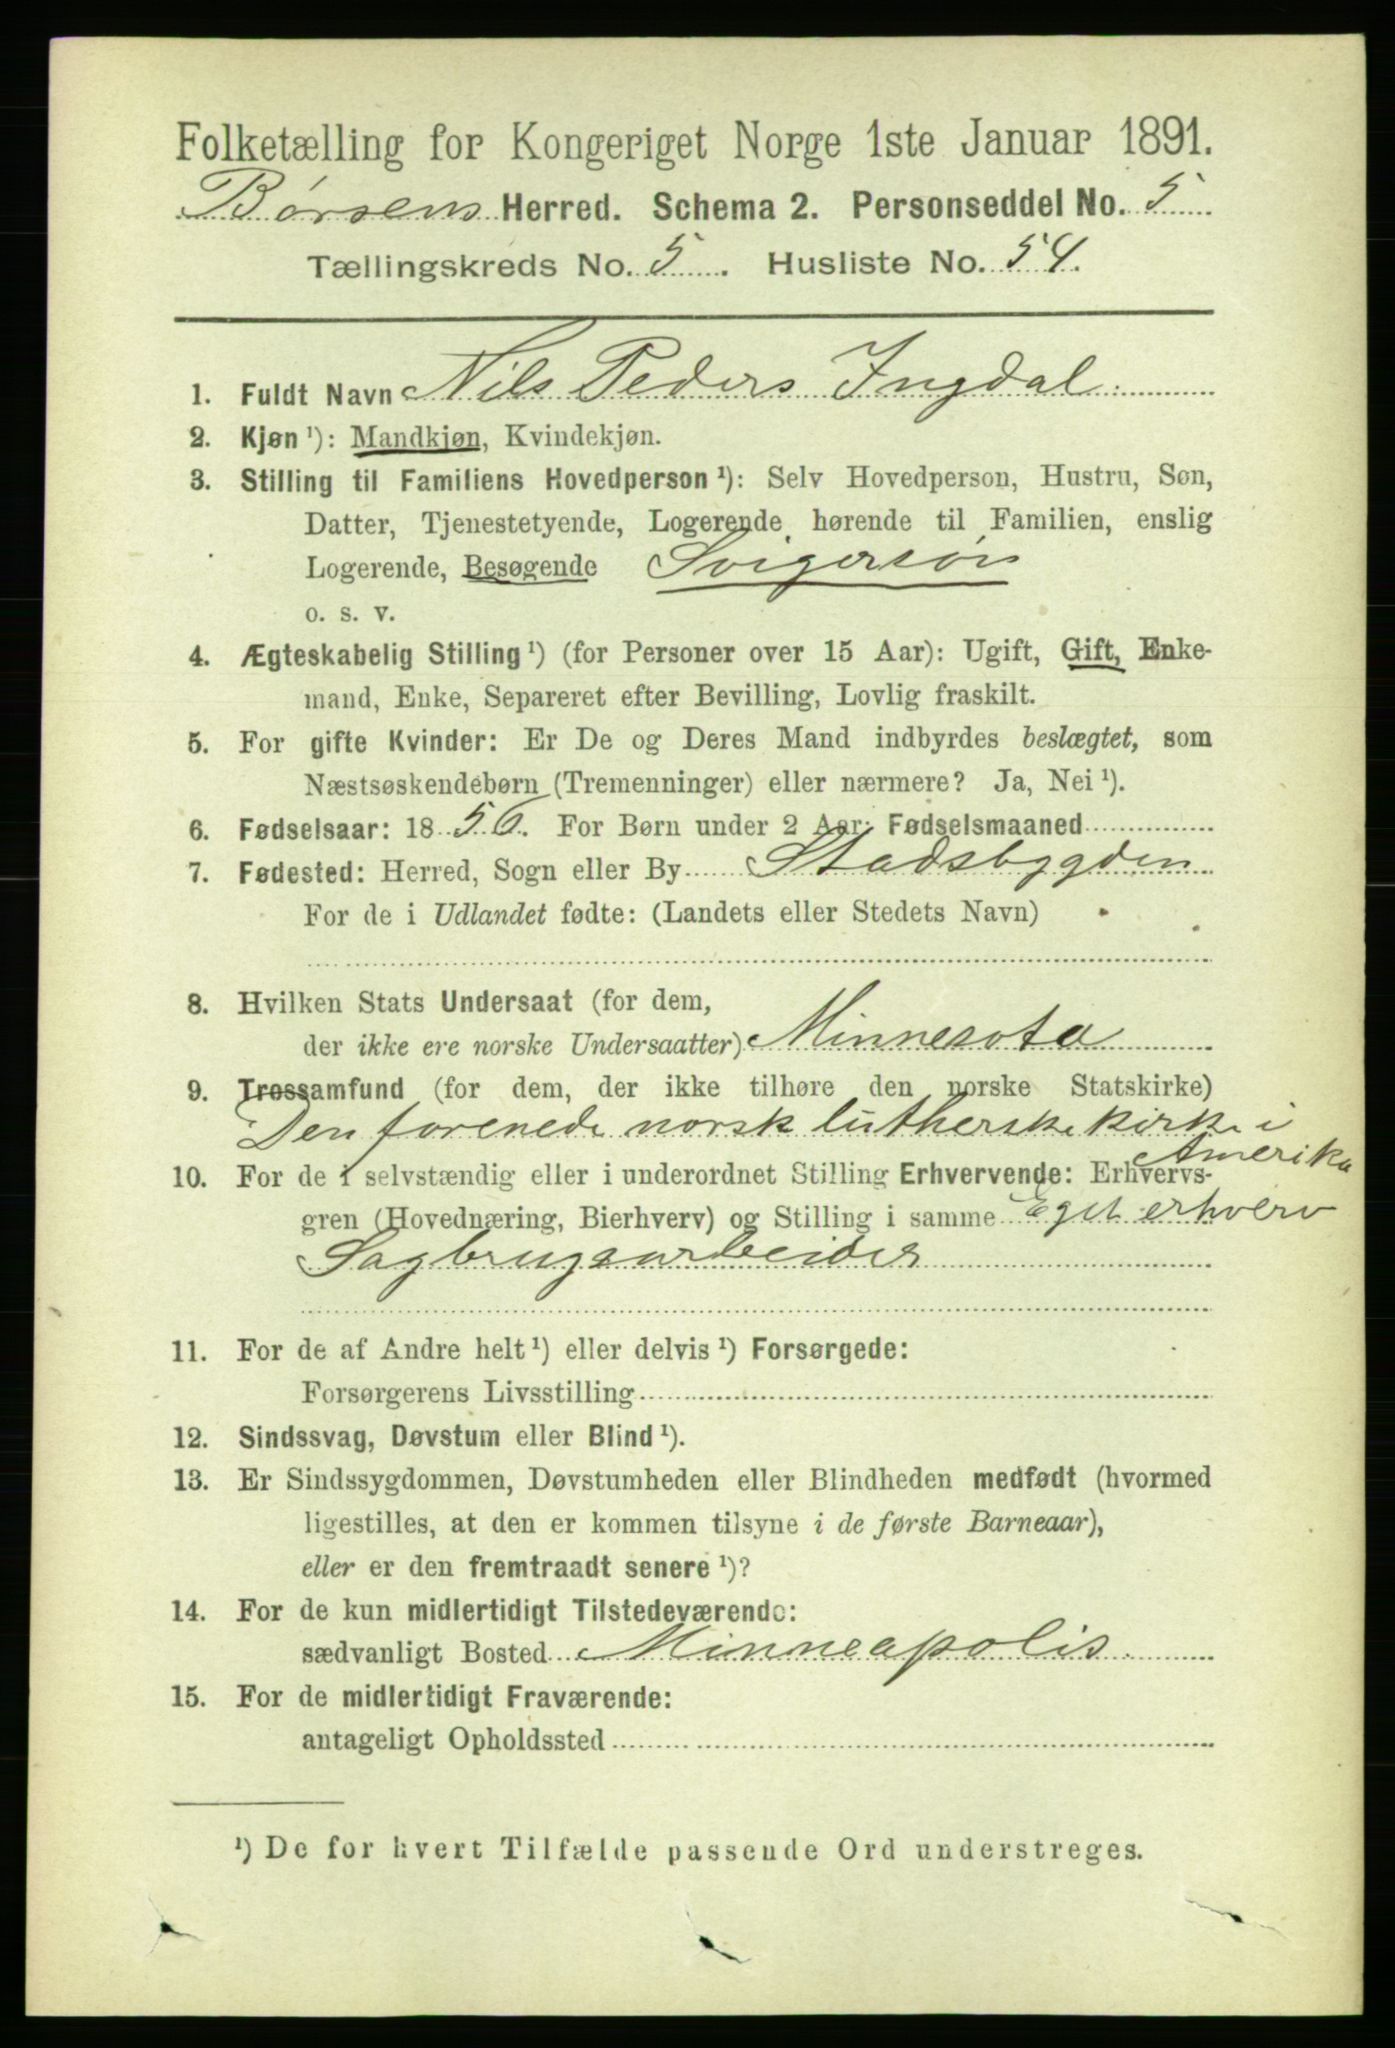 Folketælling for Kongeriget Norge 1ste Januar 1891.
Børsens Herred. Schema 2. Personseddel No. 5
Tællingskreds No. 5. Husliste No. 54.
1. Fuldt Navn Nils Peders Ingdal.
2. Kjøn ¹): Mandkjøn, Kvindekjøn.
3. Stilling til Familiens Hovedperson ¹): Selv Hovedperson, Hustru, Søn,
Datter, Tjenestetyende, Logerende hørende til Familien, enslig
Logerende, Besøgende Svigersøn
o. s. v.
4. Ægteskabelig Stilling ¹) (for Personer over 15 Aar): Ugift, Gift, Enke-
mand, Enke, Separeret efter Bevilling, Lovlig fraskilt.
5. For gifte Kvinder: Er De og Deres Mand indbyrdes beslægtet, som
Næstsøskendebørn (Tremenninger) eller nærmere? Ja, Nei ¹).
6. Fødselsaar: 1856. For Børn under 2 Aar: Fødselsmaaned
7. Fødested: Herred, Sogn eller By Stadsbygden
For de i Udlandet fødte: (Landets eller Stedets Navn)
8. Hvilken Stats Undersaat (for dem,
der ikke ere norske Undersaatter) Minnesota
9. Trossamfund (for dem, der ikke tilhøre den norske Statskirke)
Den forenede norsk lutherske kirke i
Amerika
10. For de i selvstændig eller i underordnet Stilling Erhvervende: Erhvervs-
gren (Hovednæring, Bierhverv) og Stilling i samme Eget erhverv
Sagbrugsarbeider
11. For de af Andre helt ¹) eller delvis ¹) Forsørgede:
Forsørgerens Livsstilling
12. Sindssvag, Døvstum eller Blind ¹).
13. Er Sindssygdommen, Døvstumheden eller Blindheden medfødt (hvormed
ligestilles, at den er kommen tilsyne i de første Barneaar),
eller er den fremtraadt senere ¹)?
14. For de kun midlertidigt Tilstedeværende:
sædvanligt Bosted Minneapolis.
15. For de midlertidigt Fraværende:
antageligt Opholdssted
¹) De for hvert Tilfælde passende Ord understreges.